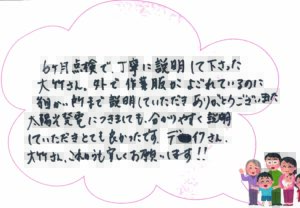 6ヶ月点検で、丁寧に説明して下さった
大竹さん、外で作業服がよごれているのに
細かい所まで説明していただきありがとうございました
太陽光発電につきましても、分かりやすく説明
していただきとても良かったです。デ イクさん、
大竹さん、これからも宜しくお願いします!!